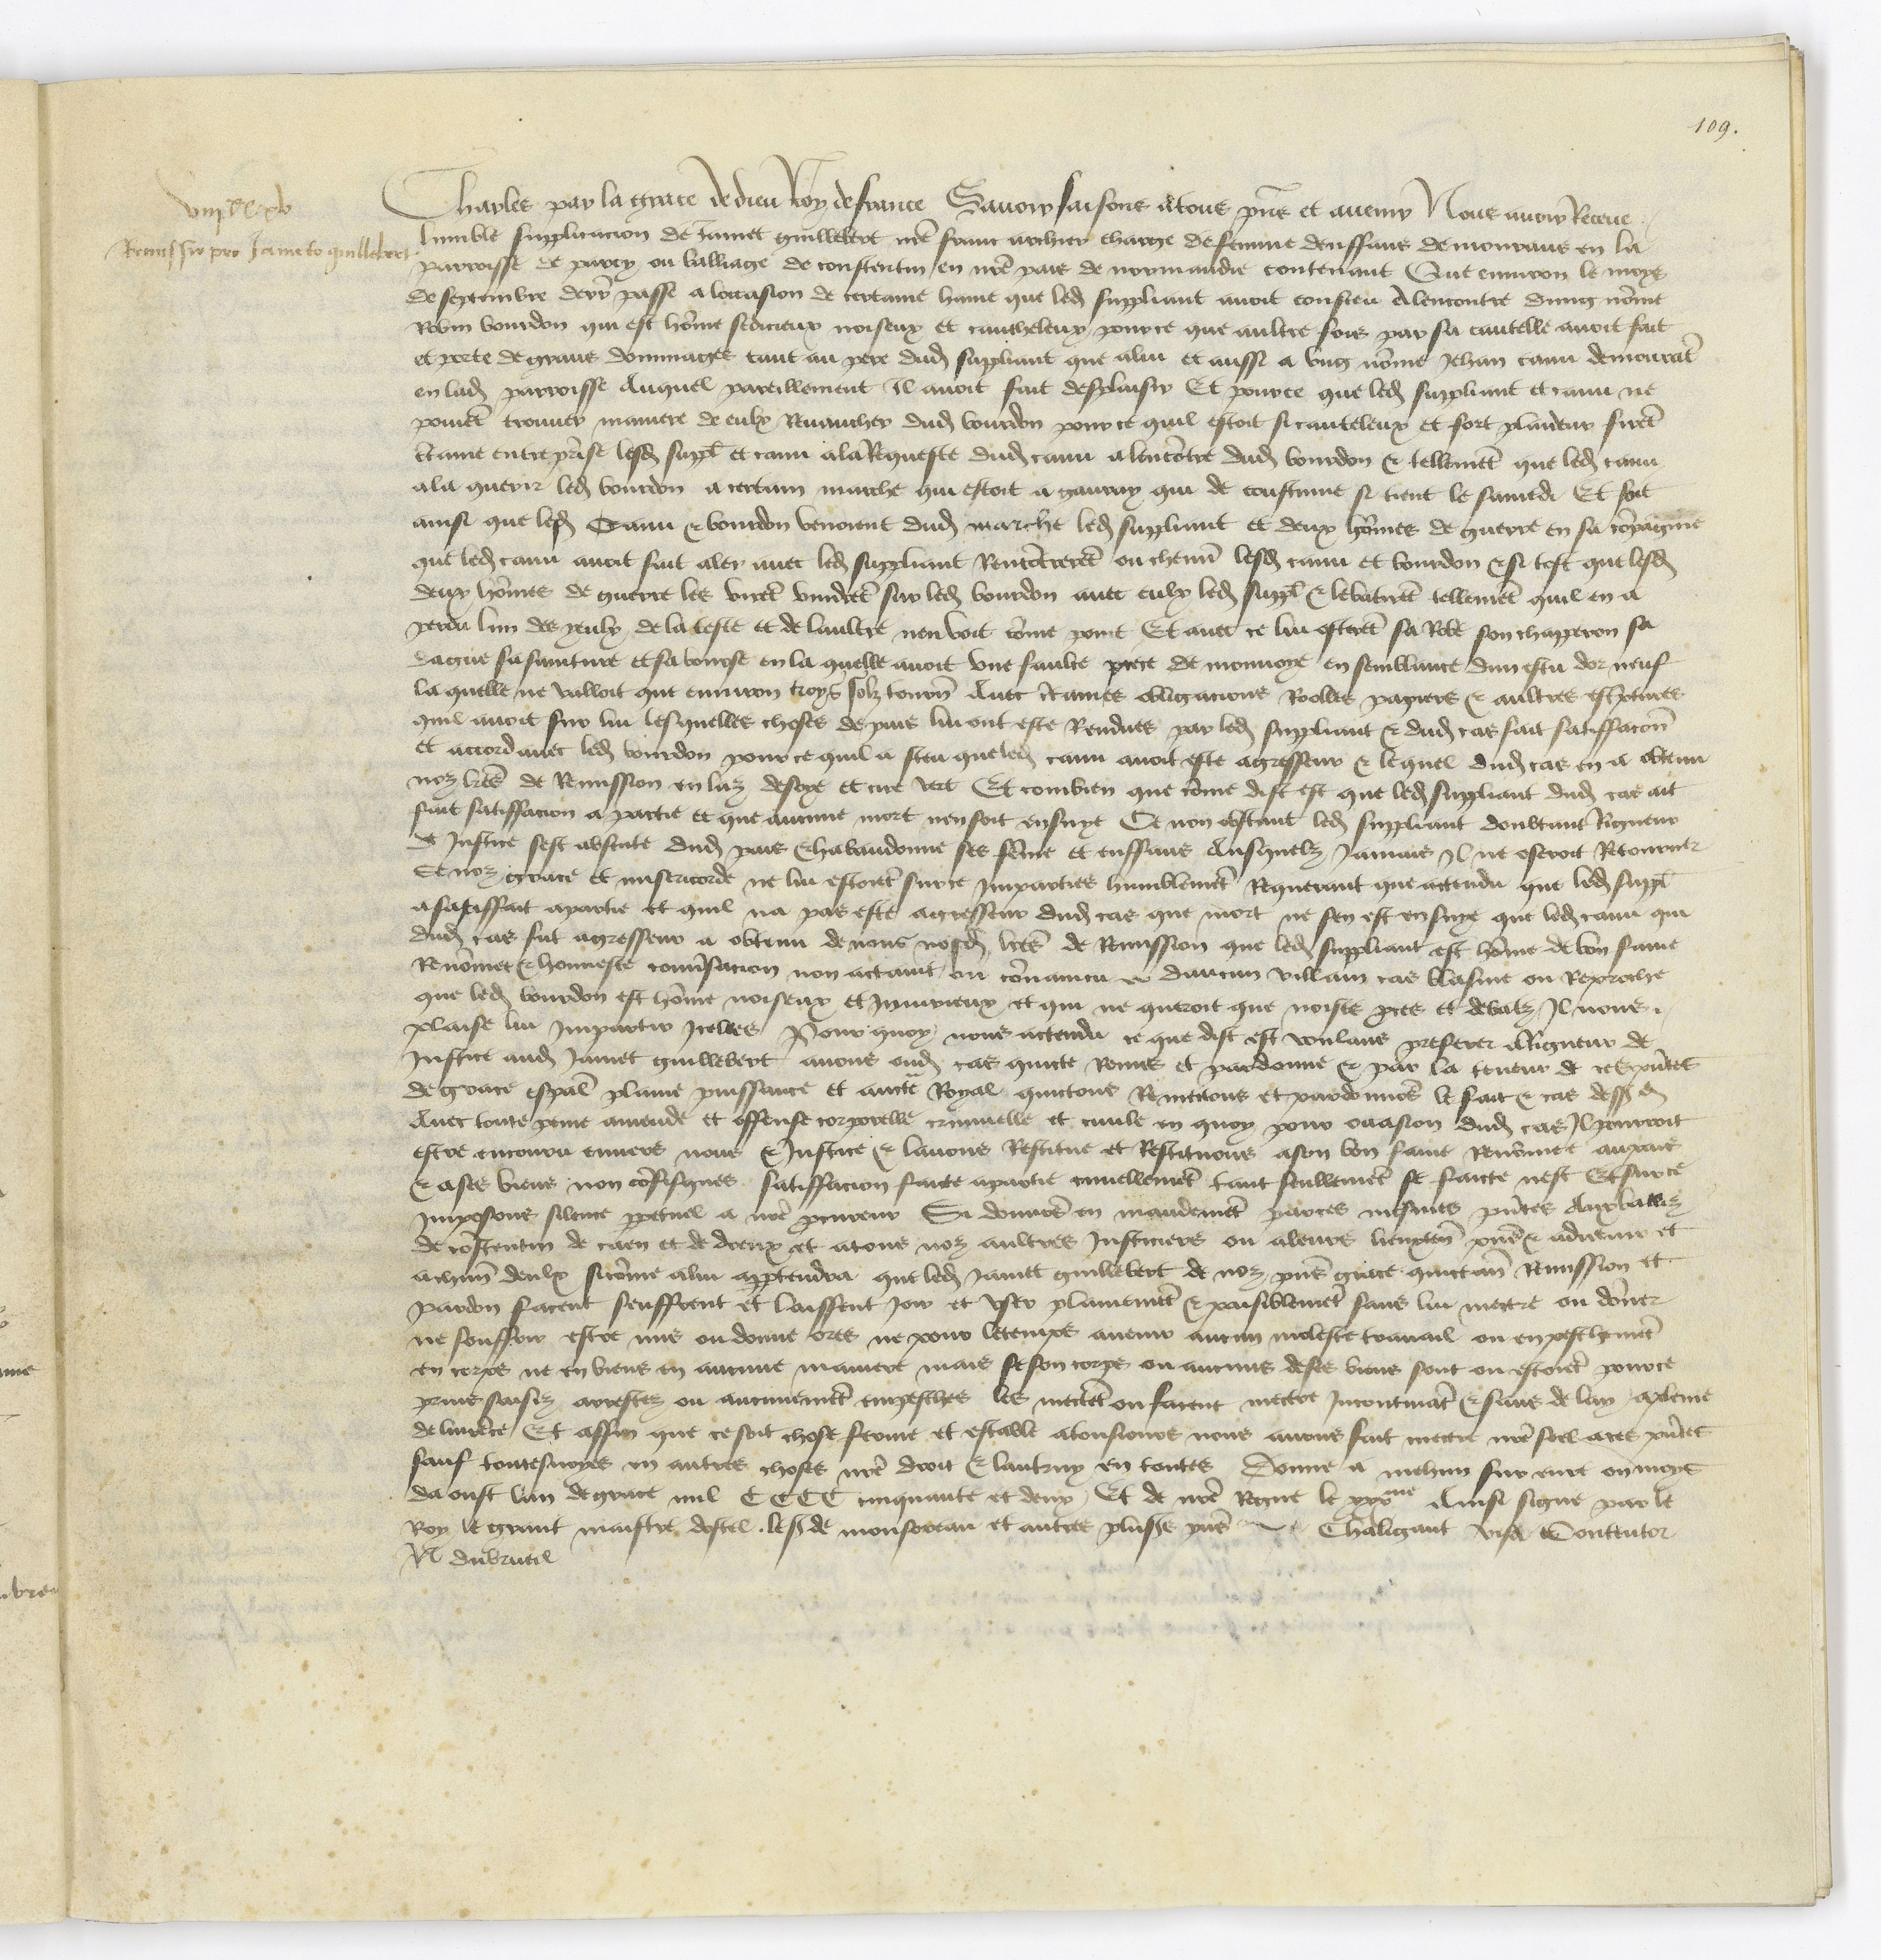 109.
viijxx xv
Remissio pro Jameto guillebert
Charles par la grace de dieu Roy de france Savoir faisons a tous pñs et avenir Nous avoir Receue
lumble supplicacion de Jamet guillebert nrẽ franc archier charge de femme denffans demourans en la
parroisse de percy ou bailliage de constentin en nrẽ pais de normandie contenant Que environ le moys
de septembre derr̃ passe a loccasion de certaine haine que led suppliant avoit conseu A lencontre dung nõme
Robin bourdon qui est hõme sedicieux noiseux et cautheleux pour ce que aultre fois par sa cautelle avoit fait
et porte de grans dommages tant au pere dud supliant que a lui et aussi a ung nõme Jehan cauu demourãt
en lad parroisse Auquel pareillement Il avoit fait desplaisir Et pource que led suppliant et cauu ne
povoiẽt trouver maniere de eulx Revancher dud bourdon pour ce quil estoit si cauteleux et fort plaideur firẽt
c̃taine entreprise lesd suppl̃ et cauu a la Requeste dud cauu a lencõtre dud bourdon & tellemẽt que led cauu
ala querir led bourdon a certain marche qui estoit a gavray qui de coustume si tient le samedi Et fut
ainsi que lesd Cauu & bourdon venoient dud marche led supliant et deux hõmes de guerre en sa cõpaignie
que led cauu avoit fait aler avec led suppliant Rencõtrerẽt ou chemĩ lesd cauu et bourdon & si tost que lesd
deux hõmes de guerre les virẽt vindrẽt sur led bourdon avec eulx led suppl̃ & le batirẽt tellemẽt quil en a
perdu lun des yeulx de la teste et de laultre nen voit cõme point Et avec ce lui osterẽt sa Robe son chapperon sa
dague sa sainture et sa bourse en la quelle avoit une faulce piece de monnoye en semblance dun escu dor neuf
la quelle ne valloit que environ troys solz tourñ Avec c̃taines obligacions Rooles papiers & aultres esc̃ptures
quil avoit sur lui lesquelles choses depuis lui ont este Rendues par led suppliant & dud cas fait satiffacõn
et accord avec led bourdon pour ce quil a sceu que led cauu avoit este agresseur & lequel dud cas en a obtenu
noz lr̃es de Remission en laz de soye et cire vert Et combien que cõme dist est que led suppliant dud cas ait
fait satiffacion a partie et que aucune mort nen soit ensuye Ce non obstant led suppliant doubtant Rigueur
de Justice sest absente dud pais & habandonne ses fẽme et enffans Ausquelz Jamais Il ne oseroit Retourner
Se noz grace et misericorde ne lui estoiẽt sur ce Imparties humblemẽt Requerant que actendu que led suppl̃
a satiffait a partie et quil na pas este agresseur dud cas que mort ne sen est ensuye que led cauu qui
dud cas fut agresseur a obtenu de nous nosd lr̃es de Remission que led suppliant est hõme de bon fame
Renõmee & honneste conv̾sacion non actaint ou cõvaincu daucun villain cas blasme ou Reproche
que led bourdon est hõme noiseux et Injurieux et qui ne queroit que noises et debatz Il nous
plaise lui Impartir Icelles Pour quoy nous actendu ce que dist est voulans preferer A Rigueur de
Justice aud Jamet guillebert avons oud cas quicte Remis et pardonne & par la teneur de ces pñtes
de grace espãl plaine puissance et auctẽ Royal quictons Remettons et pardonnõs le fait & cas dess d
Avec toute peine amende et offense corporelle criminelle et civile en quoy pour occasion dud cas Il pourroit
estre encouru envers nous & Justice & lavons Restitue et Restituons a son bon fame Renõmee au pais
& a ses biens non cõfisques satiffacion faicte a partie civellemẽt tant seullemẽt se faicte nest Et sur ce
Imposons silence ppetuel a nrẽ procureur Si donnõs en mandemẽt par ces mesmes pñtes Aux bailliz
de cõstentin de caen et de dreux et a tous noz aultres Justiciers ou a leurs lieuxteñ pñs & advenir et
a chũn deulx si cõme a lui appartendra que led Jamet guillebert de noz pñs grace quictañ Remission et
pardon facent seuffrent et laissent Joir et user plainemẽt & paisiblemẽt sans lui mettre ou dõner
ne souffrir estre mis ou donne ores ne pour le temps avenir aucun moleste travail ou enpeschemẽt
en corps ne en biens en aucune maniere mais se son corps ou aucuns de ses biens sont ou estoiẽt pour ce
prins saisiz arrestez ou aucunemẽt empesches les mectẽt ou facent mettre Incontinãt & sans delay a pleine
delivrãce Et affin que ce soit chose ferme et estable a tousjours nous avons fait mettre nrẽ seel a ces pñtes
sauf toutesvoyes en autres choses nrẽ droit & lautruy en toutes Donne a mehun sur evre ou moys
daoust lan de grace mil CCCC cinquante et deux Et de nrẽ Regne le xxxme Ainsi signe par le
Roy le grant maistre dostel le sr̃ de monsoreau et autres plusrs pñs Chaligant visa Contentor
N dubrueil